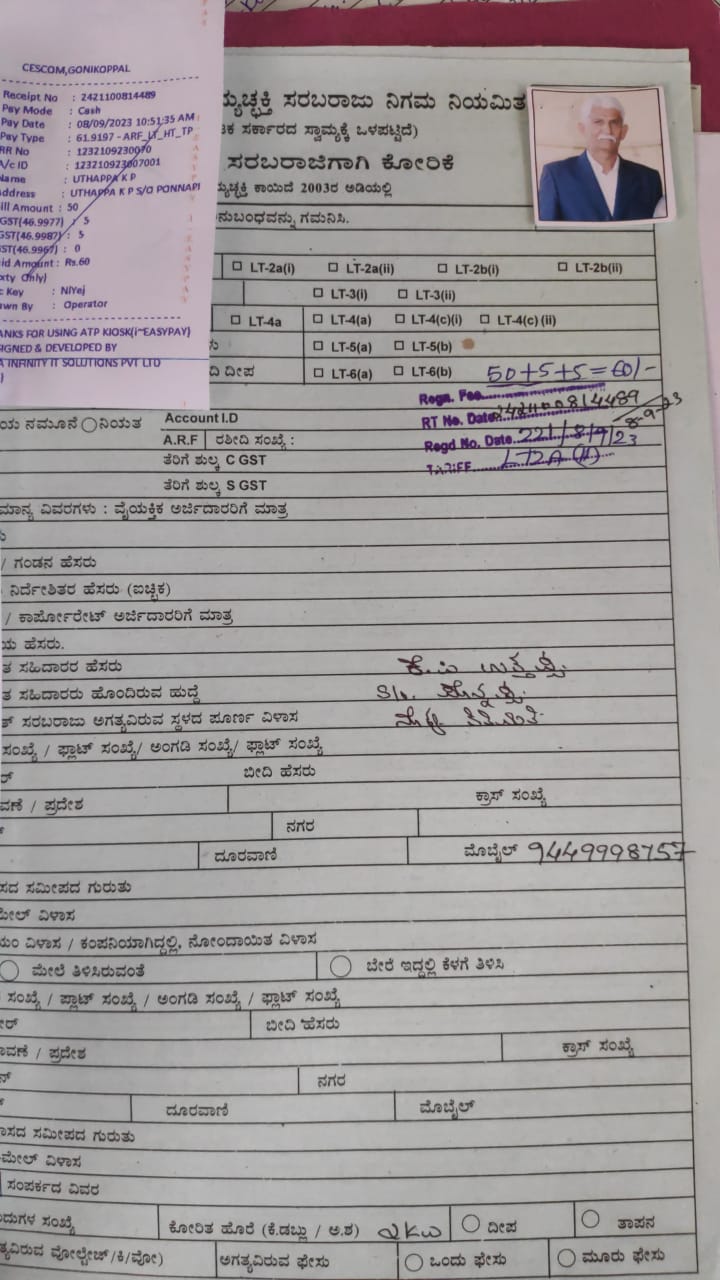 CESCOM,GONIKOPPAL
Receipt No : 2421100814489
Pay Mode : Cash
Pay Date : 08/09/2023 10:51:35 AM
Pay Type : 61.9197 - ARF_LT_HT_TP
RR No : 1232109230070
A/c ID : 123210923007001
Name : UTHAPPA K P
Address : UTHAPPA K P S/O PONNAPI
ill Amount : 50
GST(46.9977) : 5
GST(46.9987) : 5
ST(46.9967) : 0
id Amount : Rs.60
xty Only)
c Key : NIYej
wn By : Operator
ANKS FOR USING ATP KIOSK(i~EASYPAY)
SIGNED & DEVELOPED BY
A INFINITY IT SOLUTIONS PVT LTD
ಯ್ಯಚ್ಛಕ್ತಿ ಸರಬರಾಜು ನಿಗಮ ನಿಯಮಿತ
ಕ ಸರ್ಕಾರದ ಸ್ವಾಮ್ಯಕ್ಕೆ ಒಳಪಟ್ಟಿದೆ)
ಸರಬರಾಜಿಗಾಗಿ ಕೋರಿಕೆ
ಯ್ಯಚ್ಛಕ್ತಿ ಕಾಯಿದೆ 2003ರ ಅಡಿಯಲ್ಲಿ
ನುಬಂಧವನ್ನು ಗಮನಿಸಿ.
LT-2a(i) LT-2a(ii) LT-2b(i) LT-2b(ii)
LT-3(i) LT-3(ii)
LT-4a LT-4(a) LT-4(c)(i) LT-4(c) (ii)
LT-5(a) LT-5(b)
ದಿ ದೀಪ LT-6(a) LT-6(b) 50+5+5=60/-
Regn. Fee
RT No. Date 2421100814489 8-9-23
Regd No. Date 221/8/9/23
TARIFF LT2A(ii)
ಯ ನಮೂನೆ ನಿಯತ Account I.D
A.R.F ರಶೀದಿ ಸಂಖ್ಯೆ :
ತೆರಿಗೆ ಶುಲ್ಕ C GST
ತೆರಿಗೆ ಶುಲ್ಕ S GST
ಮಾನ್ಯ ವಿವರಗಳು : ವೈಯಕ್ತಿಕ ಅರ್ಜಿದಾರರಿಗೆ ಮಾತ್ರ
/ ಗಂಡನ ಹೆಸರು
ನಿರ್ದೇಶಿತರ ಹೆಸರು (ಐಚ್ಛಿಕ)
/ ಕಾರ್ಪೋರೇಟ್ ಅರ್ಜಿದಾರರಿಗೆ ಮಾತ್ರ
ಯ ಹೆಸರು.
ತ ಸಹಿದಾರರ ಹೆಸರು ಕೆ.ಪಿ ಉತ್ತಪ್ಪ.
ತ ಸಹಿದಾರರು ಹೊಂದಿರುವ ಹುದ್ದೆ S/o. ಪೊನ್ನಪ್ಪ.
ತ್ ಸರಬರಾಜು ಅಗತ್ಯವಿರುವ ಸ್ಥಳದ ಪೂರ್ಣ ವಿಳಾಸ
ಸಂಖ್ಯೆ / ಫ್ಲಾಟ್ ಸಂಖ್ಯೆ/ ಅಂಗಡಿ ಸಂಖ್ಯೆ/ ಫ್ಲಾಟ್ ಸಂಖ್ಯೆ
ರ್ ಬೀದಿ ಹೆಸರು
ವಣೆ / ಪ್ರದೇಶ ಕ್ರಾಸ್ ಸಂಖ್ಯೆ
ನಗರ
ದೂರವಾಣಿ ಮೊಬೈಲ್ 9449998757
ಸದ ಸಮೀಪದ ಗುರುತು
ಮೇಲ್ ವಿಳಾಸ
ಯಂ ವಿಳಾಸ / ಕಂಪನಿಯಾಗಿದ್ದಲ್ಲಿ, ನೋಂದಾಯಿತ ವಿಳಾಸ
ಮೇಲೆ ತಿಳಿಸಿರುವಂತೆ ಬೇರೆ ಇದ್ದಲ್ಲಿ ಕೆಳಗೆ ತಿಳಿಸಿ
ಸಂಖ್ಯೆ / ಪ್ಲಾಟ್ ಸಂಖ್ಯೆ / ಅಂಗಡಿ ಸಂಖ್ಯೆ / ಫ್ಲಾಟ್ ಸಂಖ್ಯೆ
ರ್ ಬೀದಿ ಹೆಸರು
ಾವಣೆ / ಪ್ರದೇಶ ಕ್ರಾಸ್ ಸಂಖ್ಯೆ
ನ್ ನಗರ
ದೂರವಾಣಿ ಮೊಬೈಲ್
ಾಸದ ಸಮೀಪದ ಗುರುತು
ಮೇಲ್ ವಿಳಾಸ
ಸಂಪರ್ಕದ ವಿವರ
ದುಗಳ ಸಂಖ್ಯೆ ಕೋರಿತ ಹೊರೆ (ಕೆ.ಡಬ್ಲು / ಅ.ಶ) 2KW ದೀಪ ತಾಪನ
ತ್ಯವಿರುವ ವೋಲ್ಟೇಜ್/ಕಿ/ವೋ) ಅಗತ್ಯವಿರುವ ಫೇಸು ಒಂದು ಫೇಸು ಮೂರು ಫೇಸು